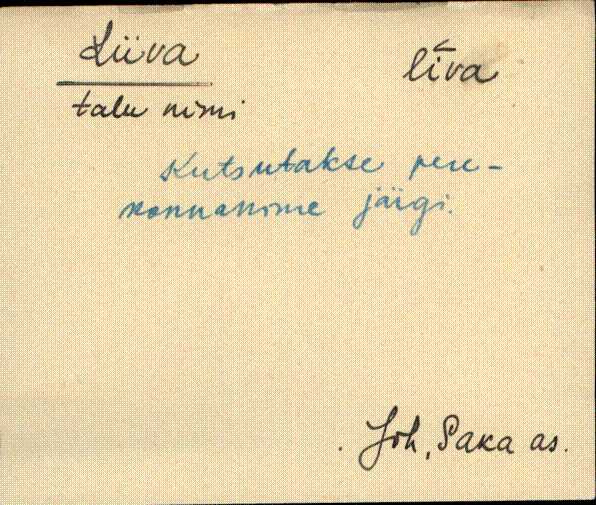 Liiva līva
talu nimi
Kutsutakse pere-
konnanime järgi.
Joh, Paka as.